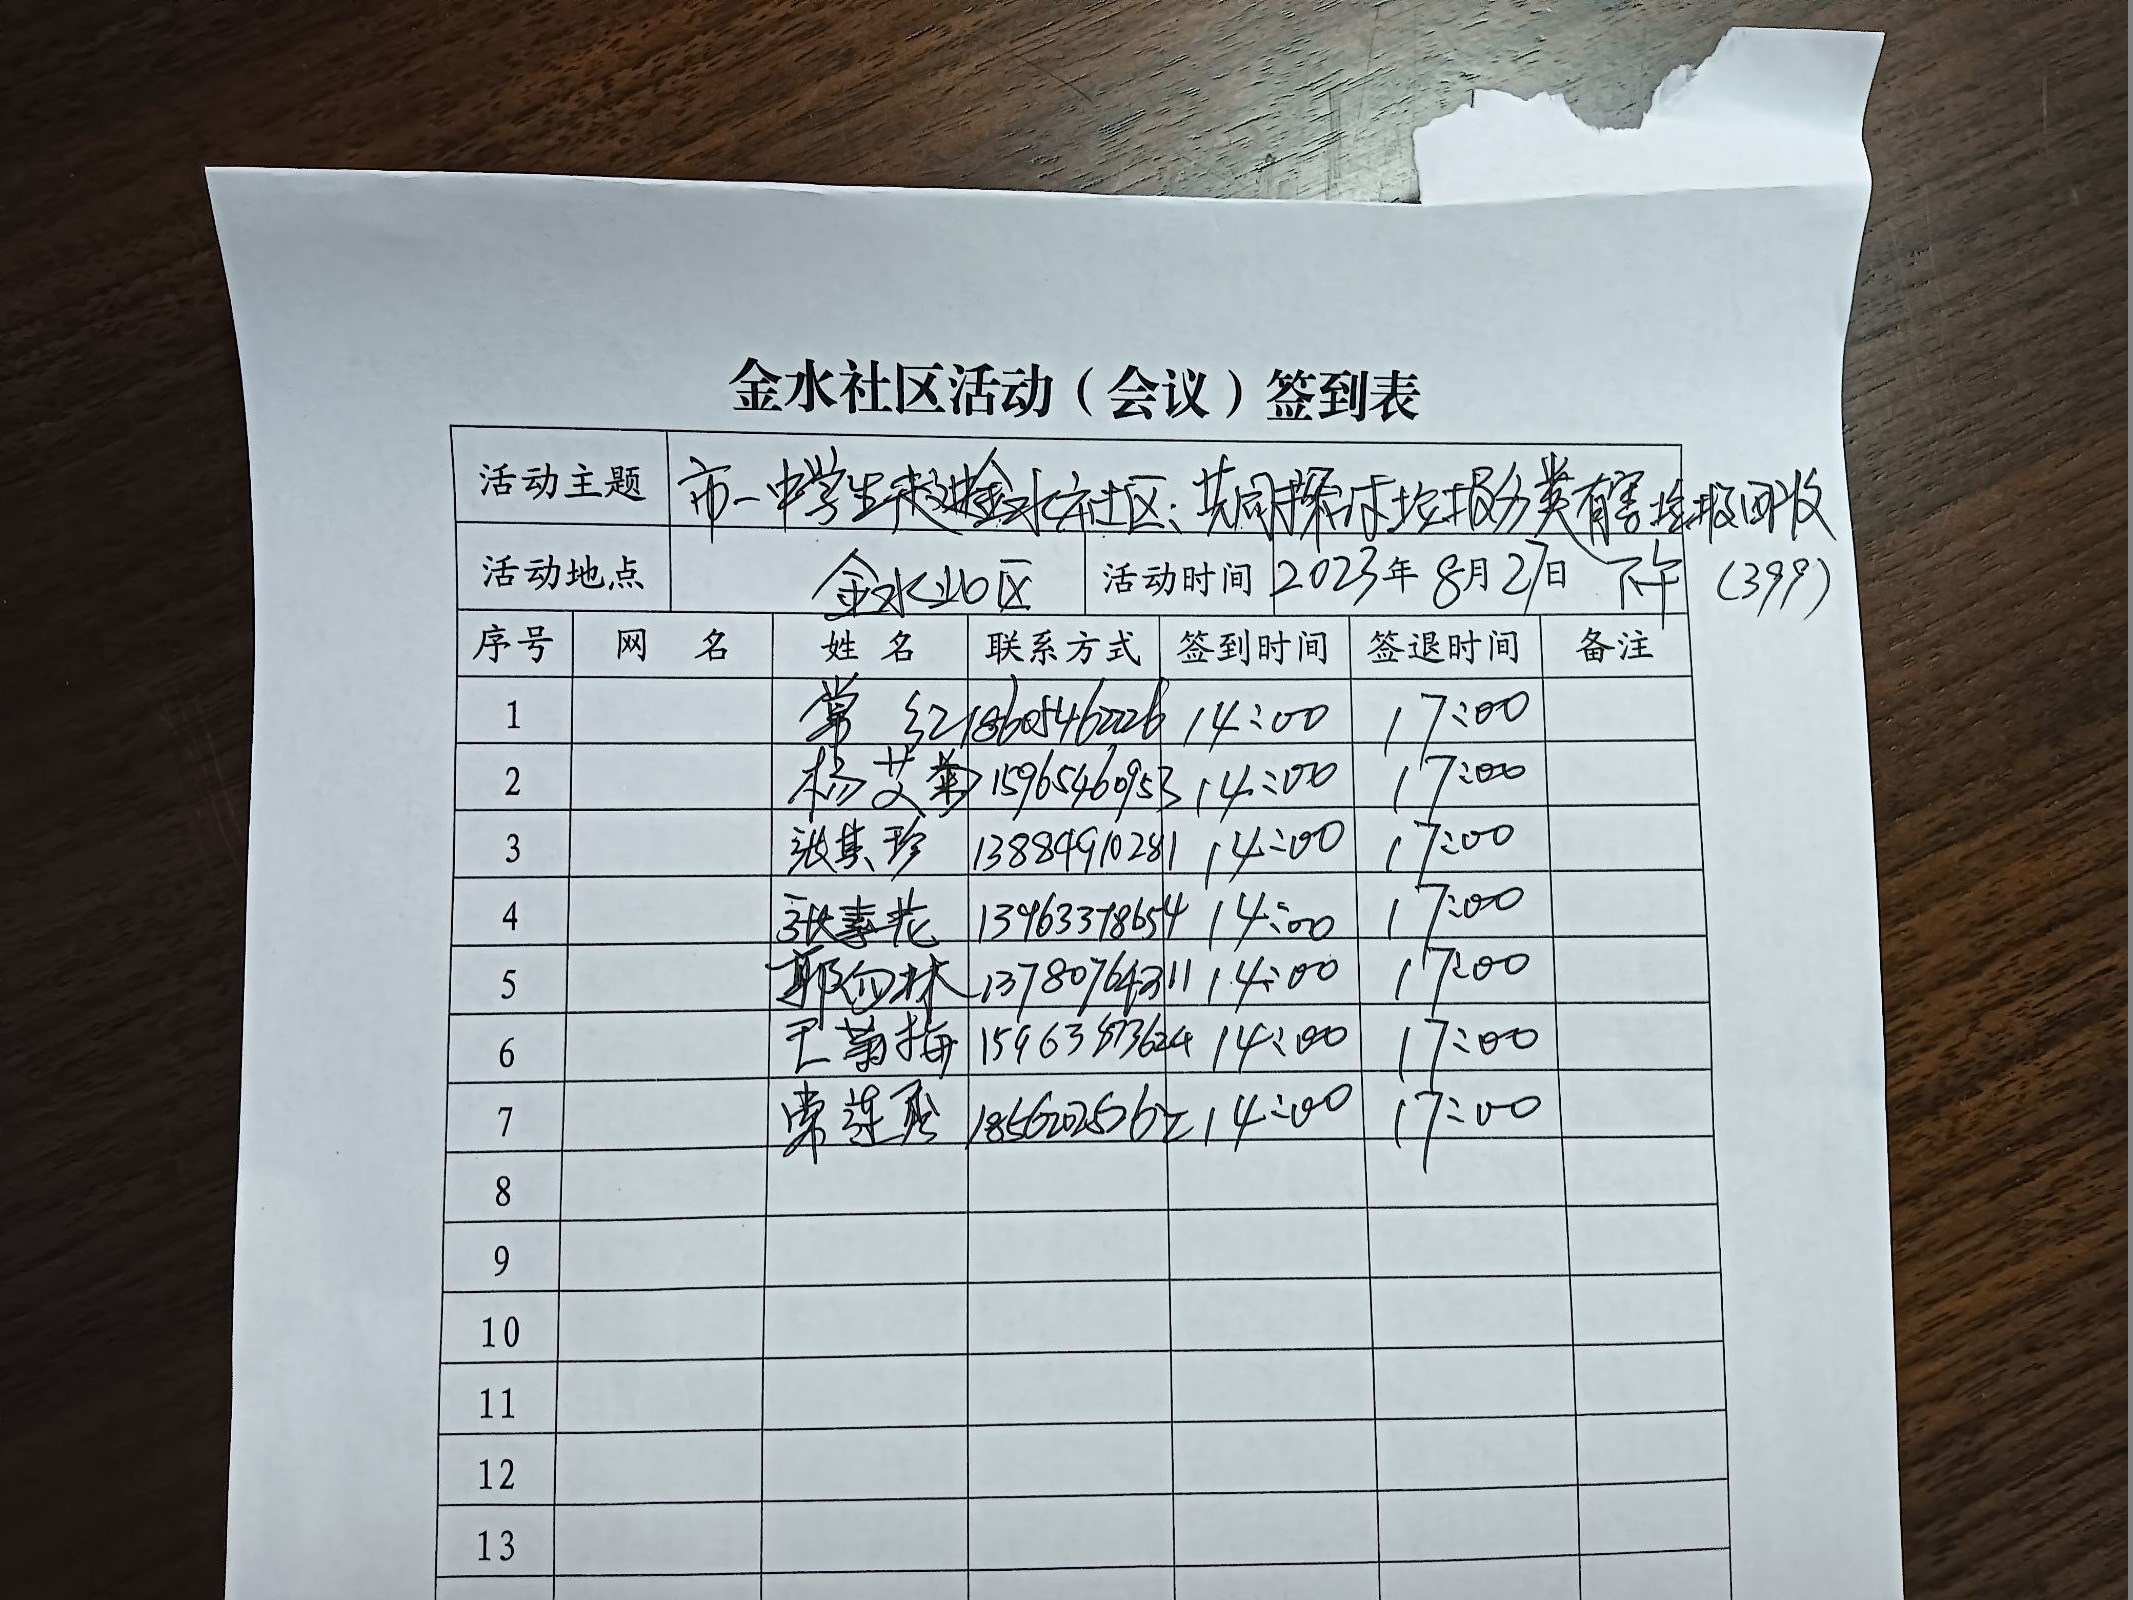 金水社区活动（会议）签到表
活动主题 市一中学生走进金水社区：共同探讨垃圾分类有害垃圾回收
活动地点 金水北区 活动时间 2023年8月27日 下午 (399)
序号 网 名 姓 名 联系方式 签到时间 签退时间 备注
1 常 红 18605462226 14:00 17:00
2 杨艾菊 15965460953 14:00 17:00
3 张其珍 13884910281 14:00 17:00
4 张素花 13963378654 14:00 17:00
5 郭 林 13780764311 14:00 17:00
6 王菊梅 14:00 17:00
7 常莲 14:00 17:00
8
9
10
11
12
13